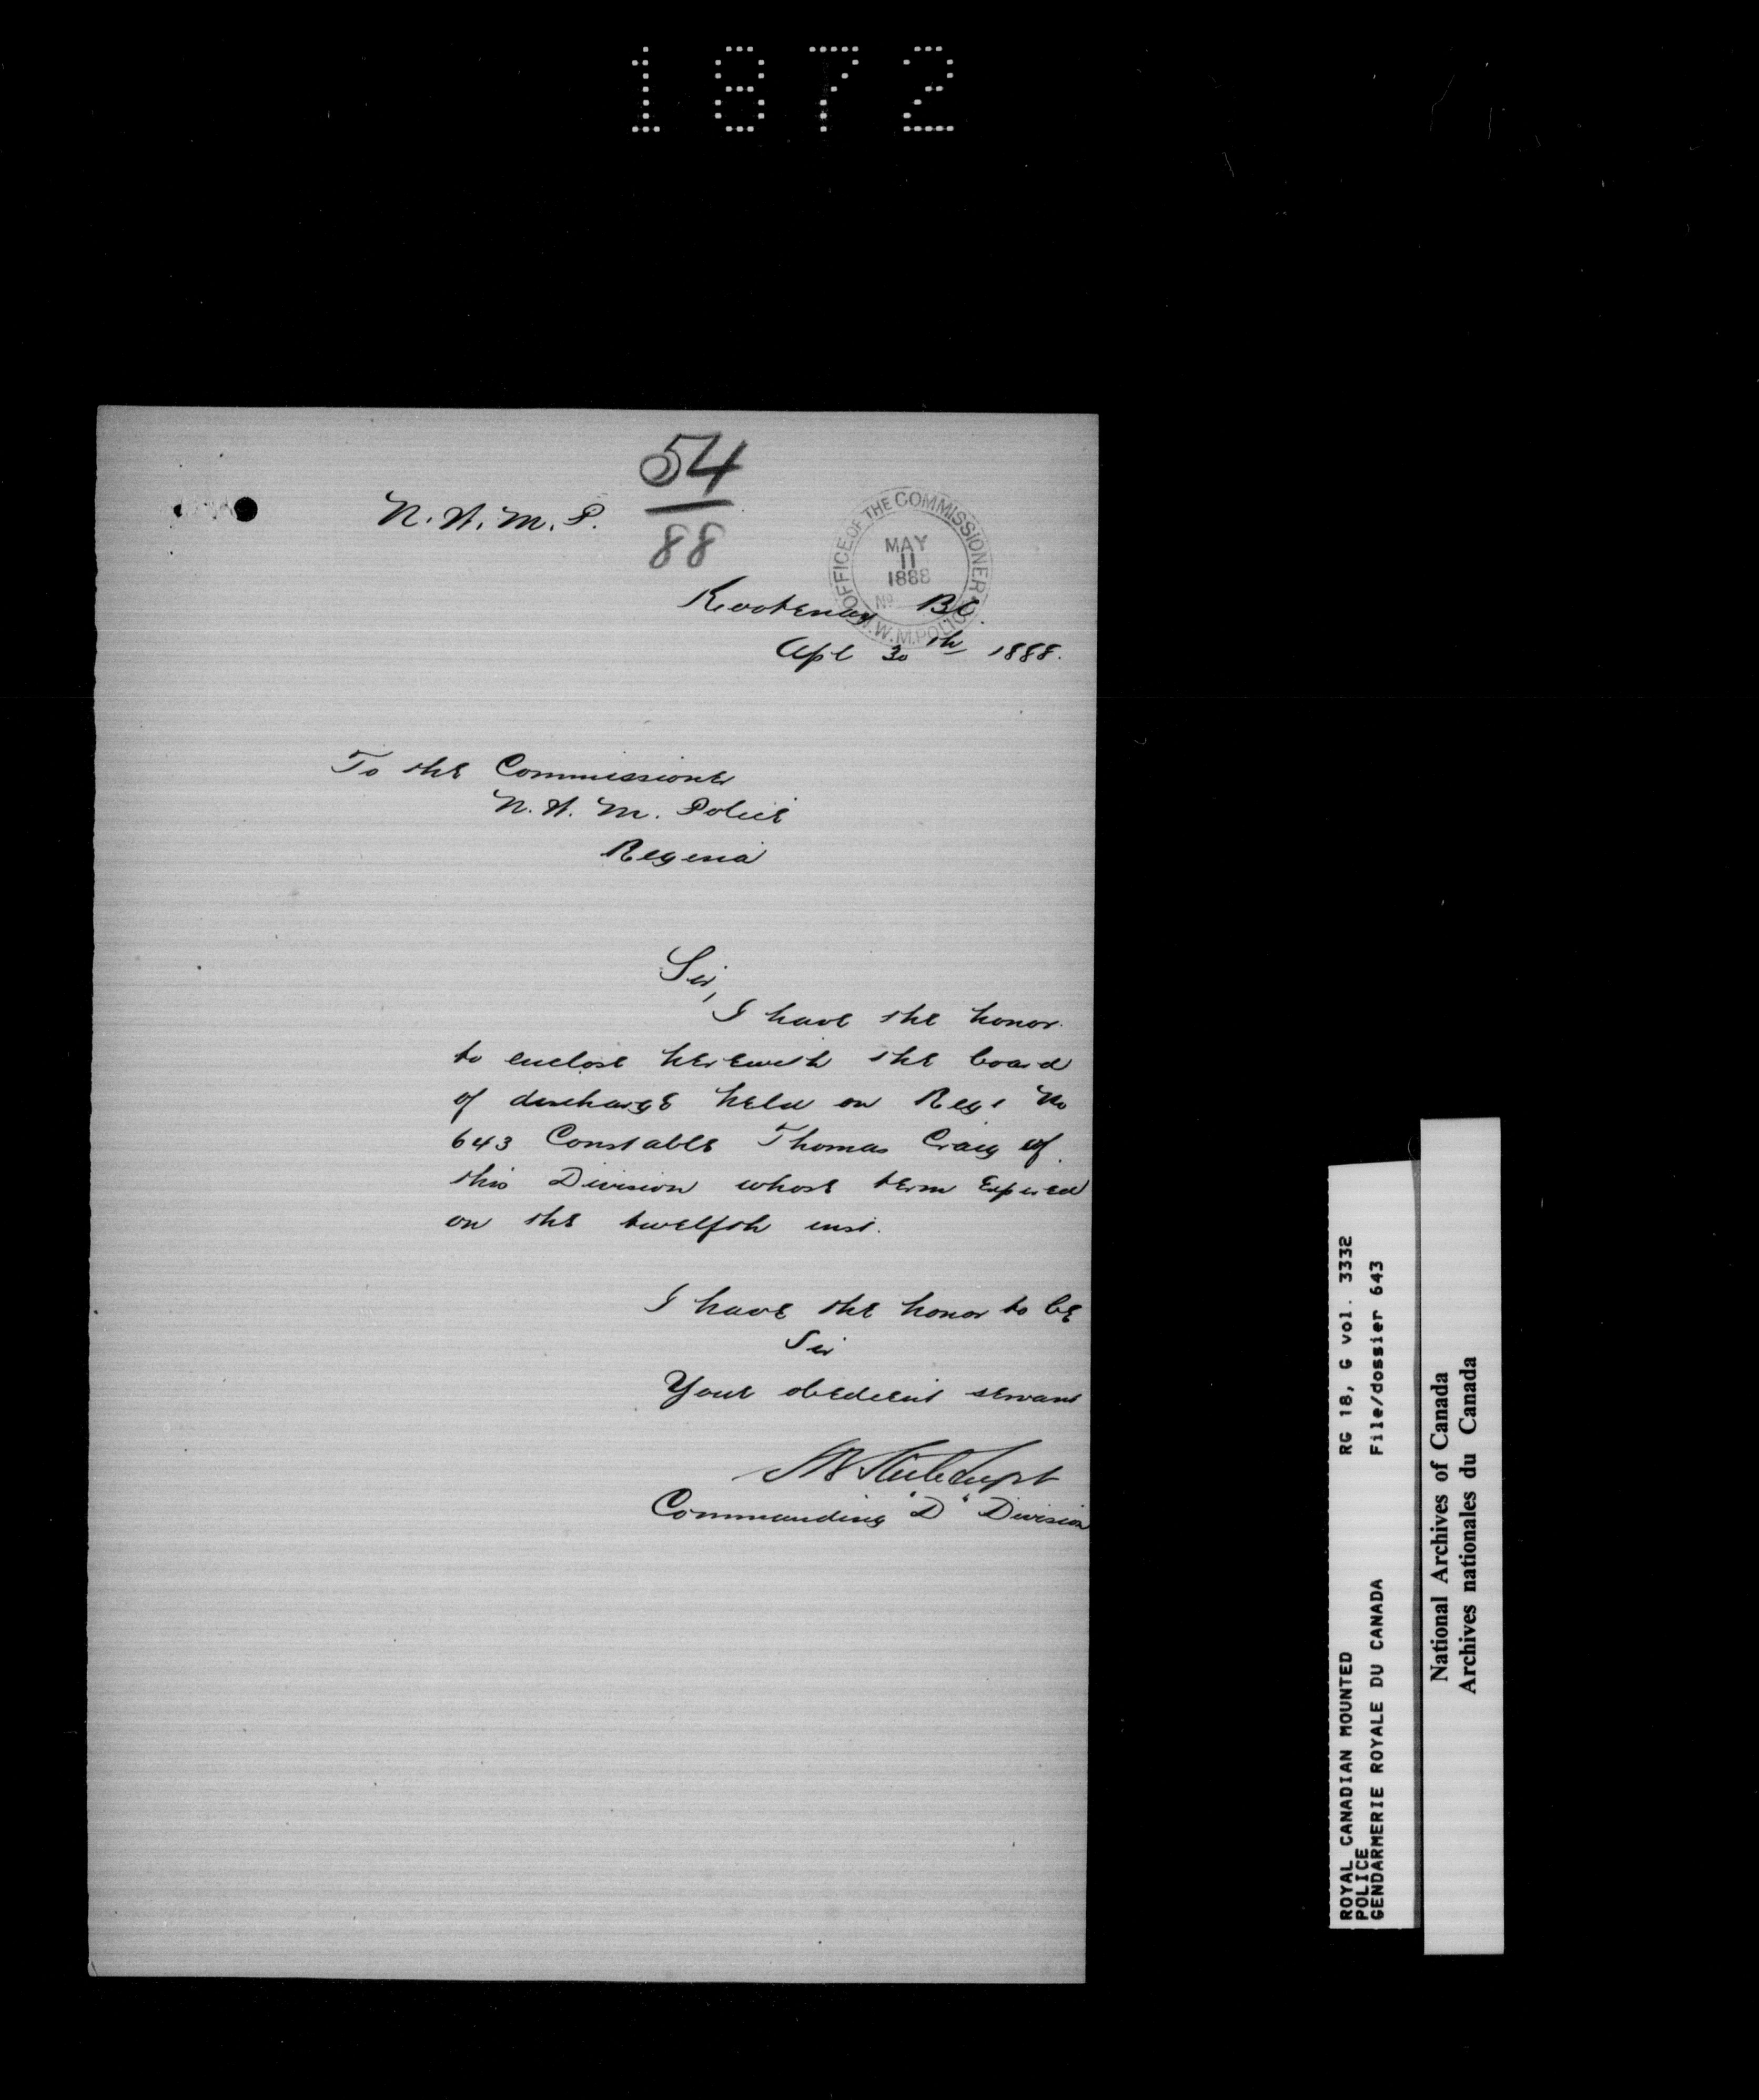 1872
54
88
N. W. M. P.
OFFICE OF THE COMMISSIONER
MAY
11
1888
No
N.W.M. POLICE
Kootenay BC.
Apl 30th 1888.
To the Commissioner
N. W. M. Police
Regina
Sir,
I have the honor
to enclose herewith the board
of discharge held on Regt No
643 Constable Thomas Craig of
this Division whose term expired
on the twelfth inst.
I have the honor to be
Sir
Your obedient servant
SB Steele Supt
Commanding "D" Division
ROYAL CANADIAN MOUNTED
POLICE
GENDARMERIE ROYALE DU CANADA
RG 18, G vol. 3332
File/dossier 643
National Archives of Canada
Archives nationales du Canada